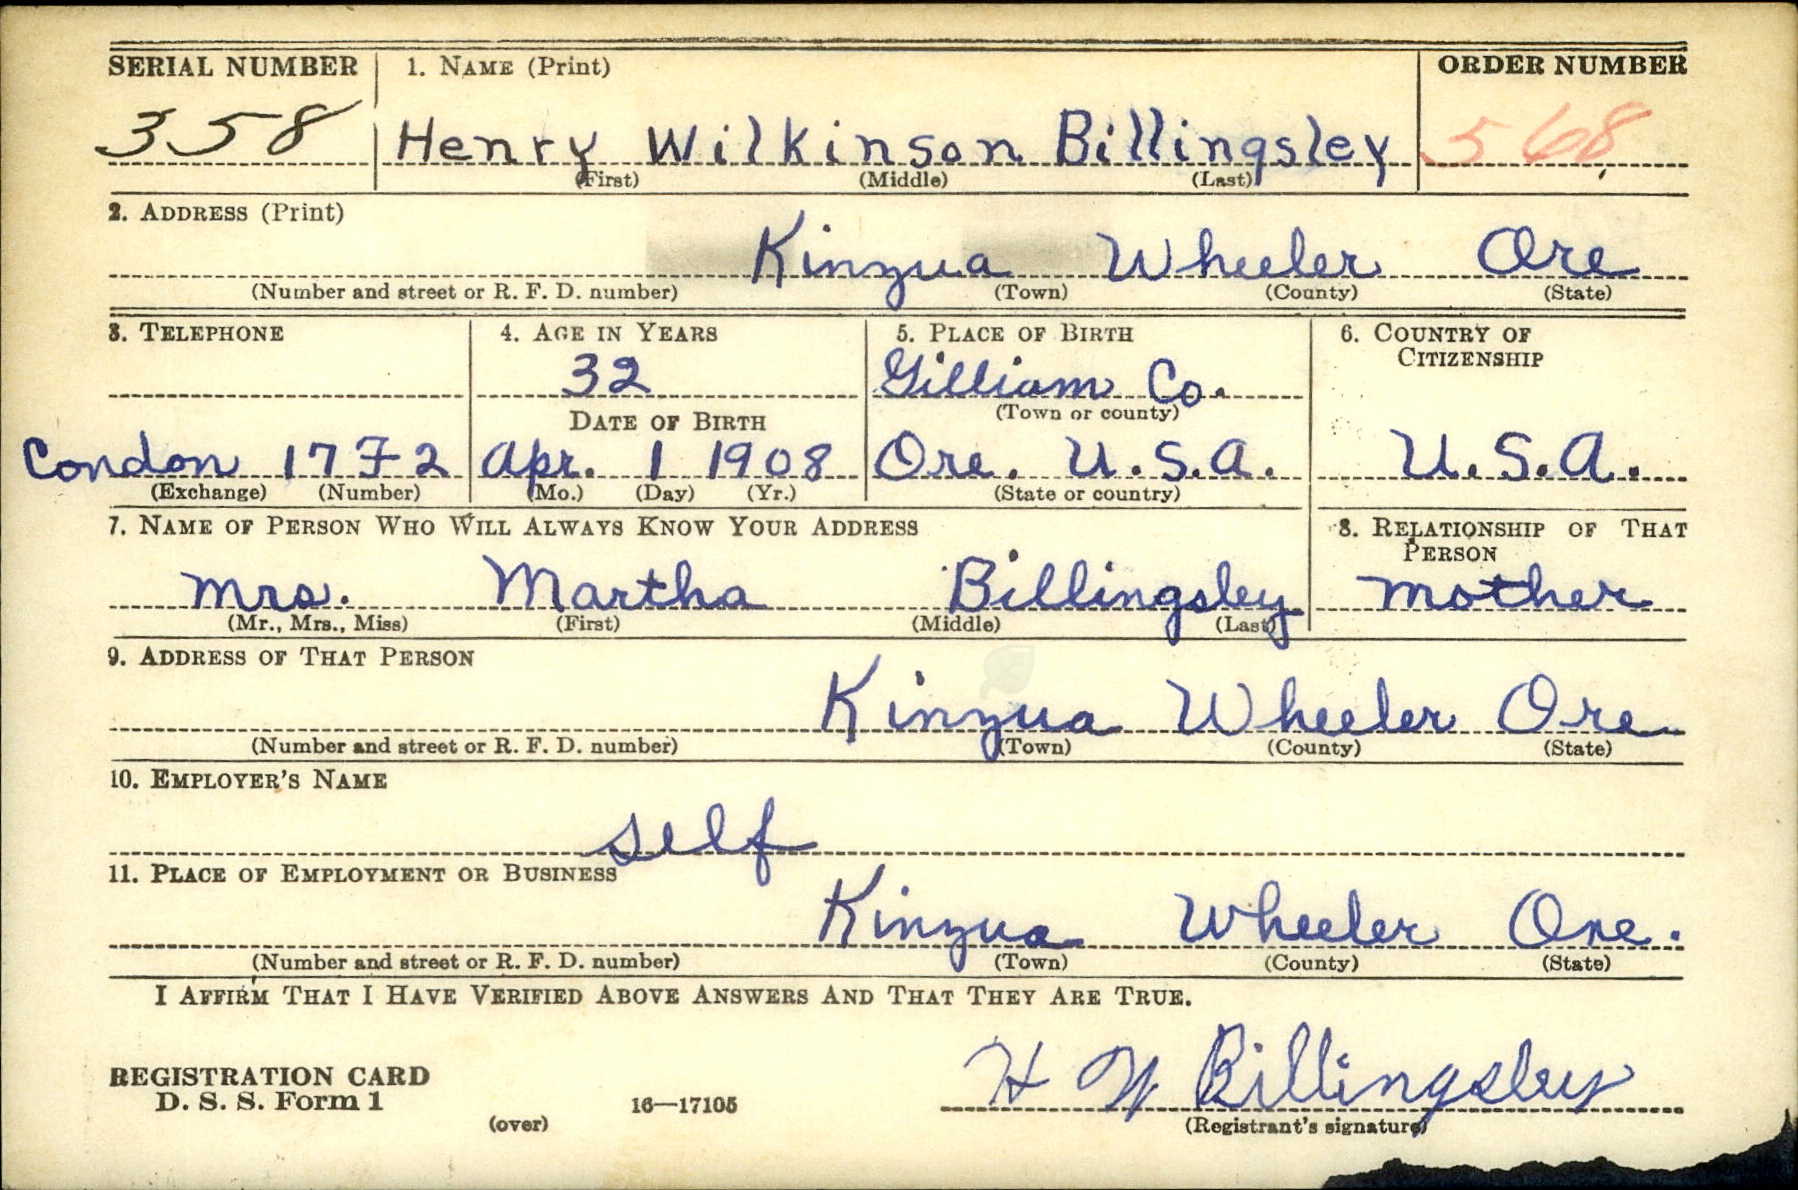 SERIAL NUMBER 1. NAME (Print) ORDER NUMBER
358 Henry Wilkinson Billingsley 568
(First) (Middle) (Last)
2. ADDRESS (Print)
Kinzua Wheeler Ore
(Number and street or R. F. D. number) (Town) (County) (State)
3. TELEPHONE 4. AGE IN YEARS 5. PLACE OF BIRTH 6. COUNTRY OF
CITIZENSHIP
32 Gilliam Co.
(Town or county)
DATE OF BIRTH
Condon 17F2 Apr. 1 1908 Ore. U.S.A. U.S.A.
(Exchange) (Number) (Mo.) (Day) (Yr.) (State or country)
7. NAME OF PERSON WHO WILL ALWAYS KNOW YOUR ADDRESS 8. RELATIONSHIP OF THAT
PERSON
Mrs. Martha Billingsley mother
(Mr., Mrs., Miss) (First) (Middle) (Last)
9. ADDRESS OF THAT PERSON
Kinzua Wheeler Ore
(Number and street or R. F. D. number) (Town) (County) (State)
10. EMPLOYER'S NAME
self
11. PLACE OF EMPLOYMENT OR BUSINESS
Kinzua Wheeler Ore.
(Number and street or R. F. D. number) (Town) (County) (State)
I AFFIRM THAT I HAVE VERIFIED ABOVE ANSWERS AND THAT THEY ARE TRUE.
H W Billingsley
REGISTRATION CARD
D. S. S. Form 1 16—17105
(over) (Registrant's signature)